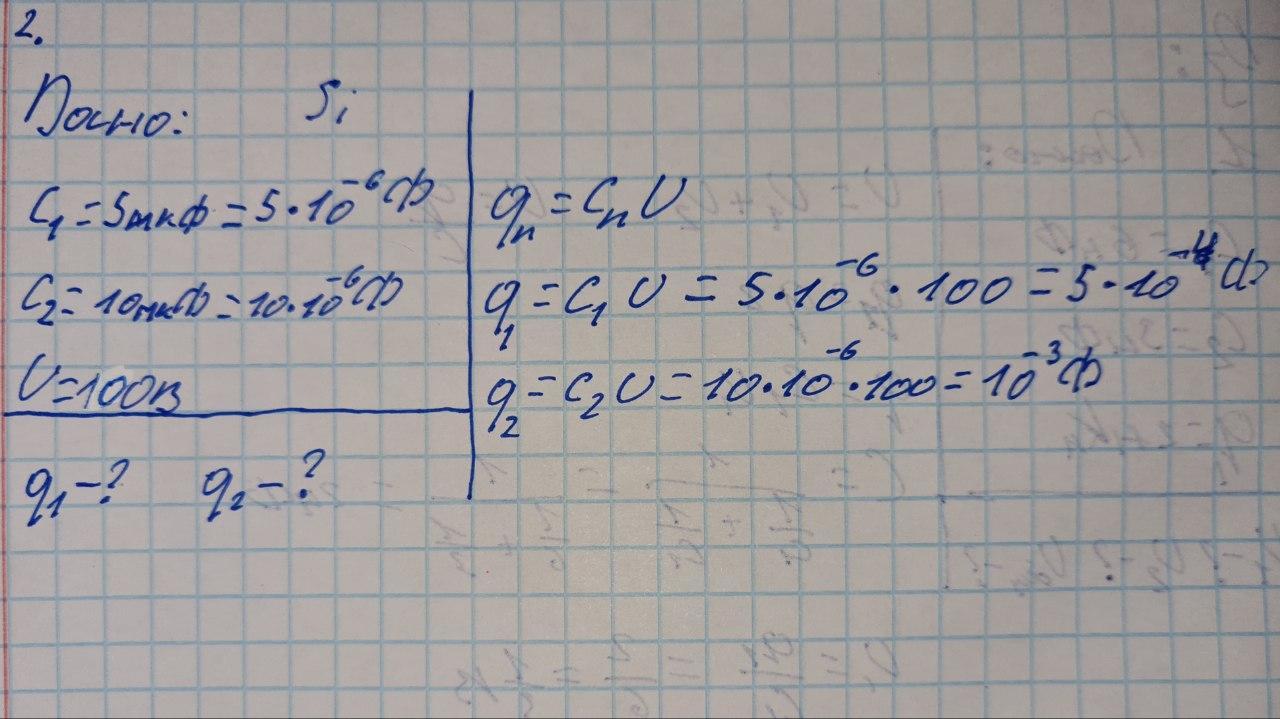 2.
Дано: Si
C₁ = 5мкф = 5·10⁻⁶Ф
C₂ = 10мкФ = 10·10⁻⁶Ф
U = 100в
q₁ - ? q₂ - ?
qₙ = CₙU
q₁ = C₁U = 5·10⁻⁶·100 = 5·10⁻⁴Ф
q₂ = C₂U = 10·10⁻⁶·100 = 10⁻³Ф